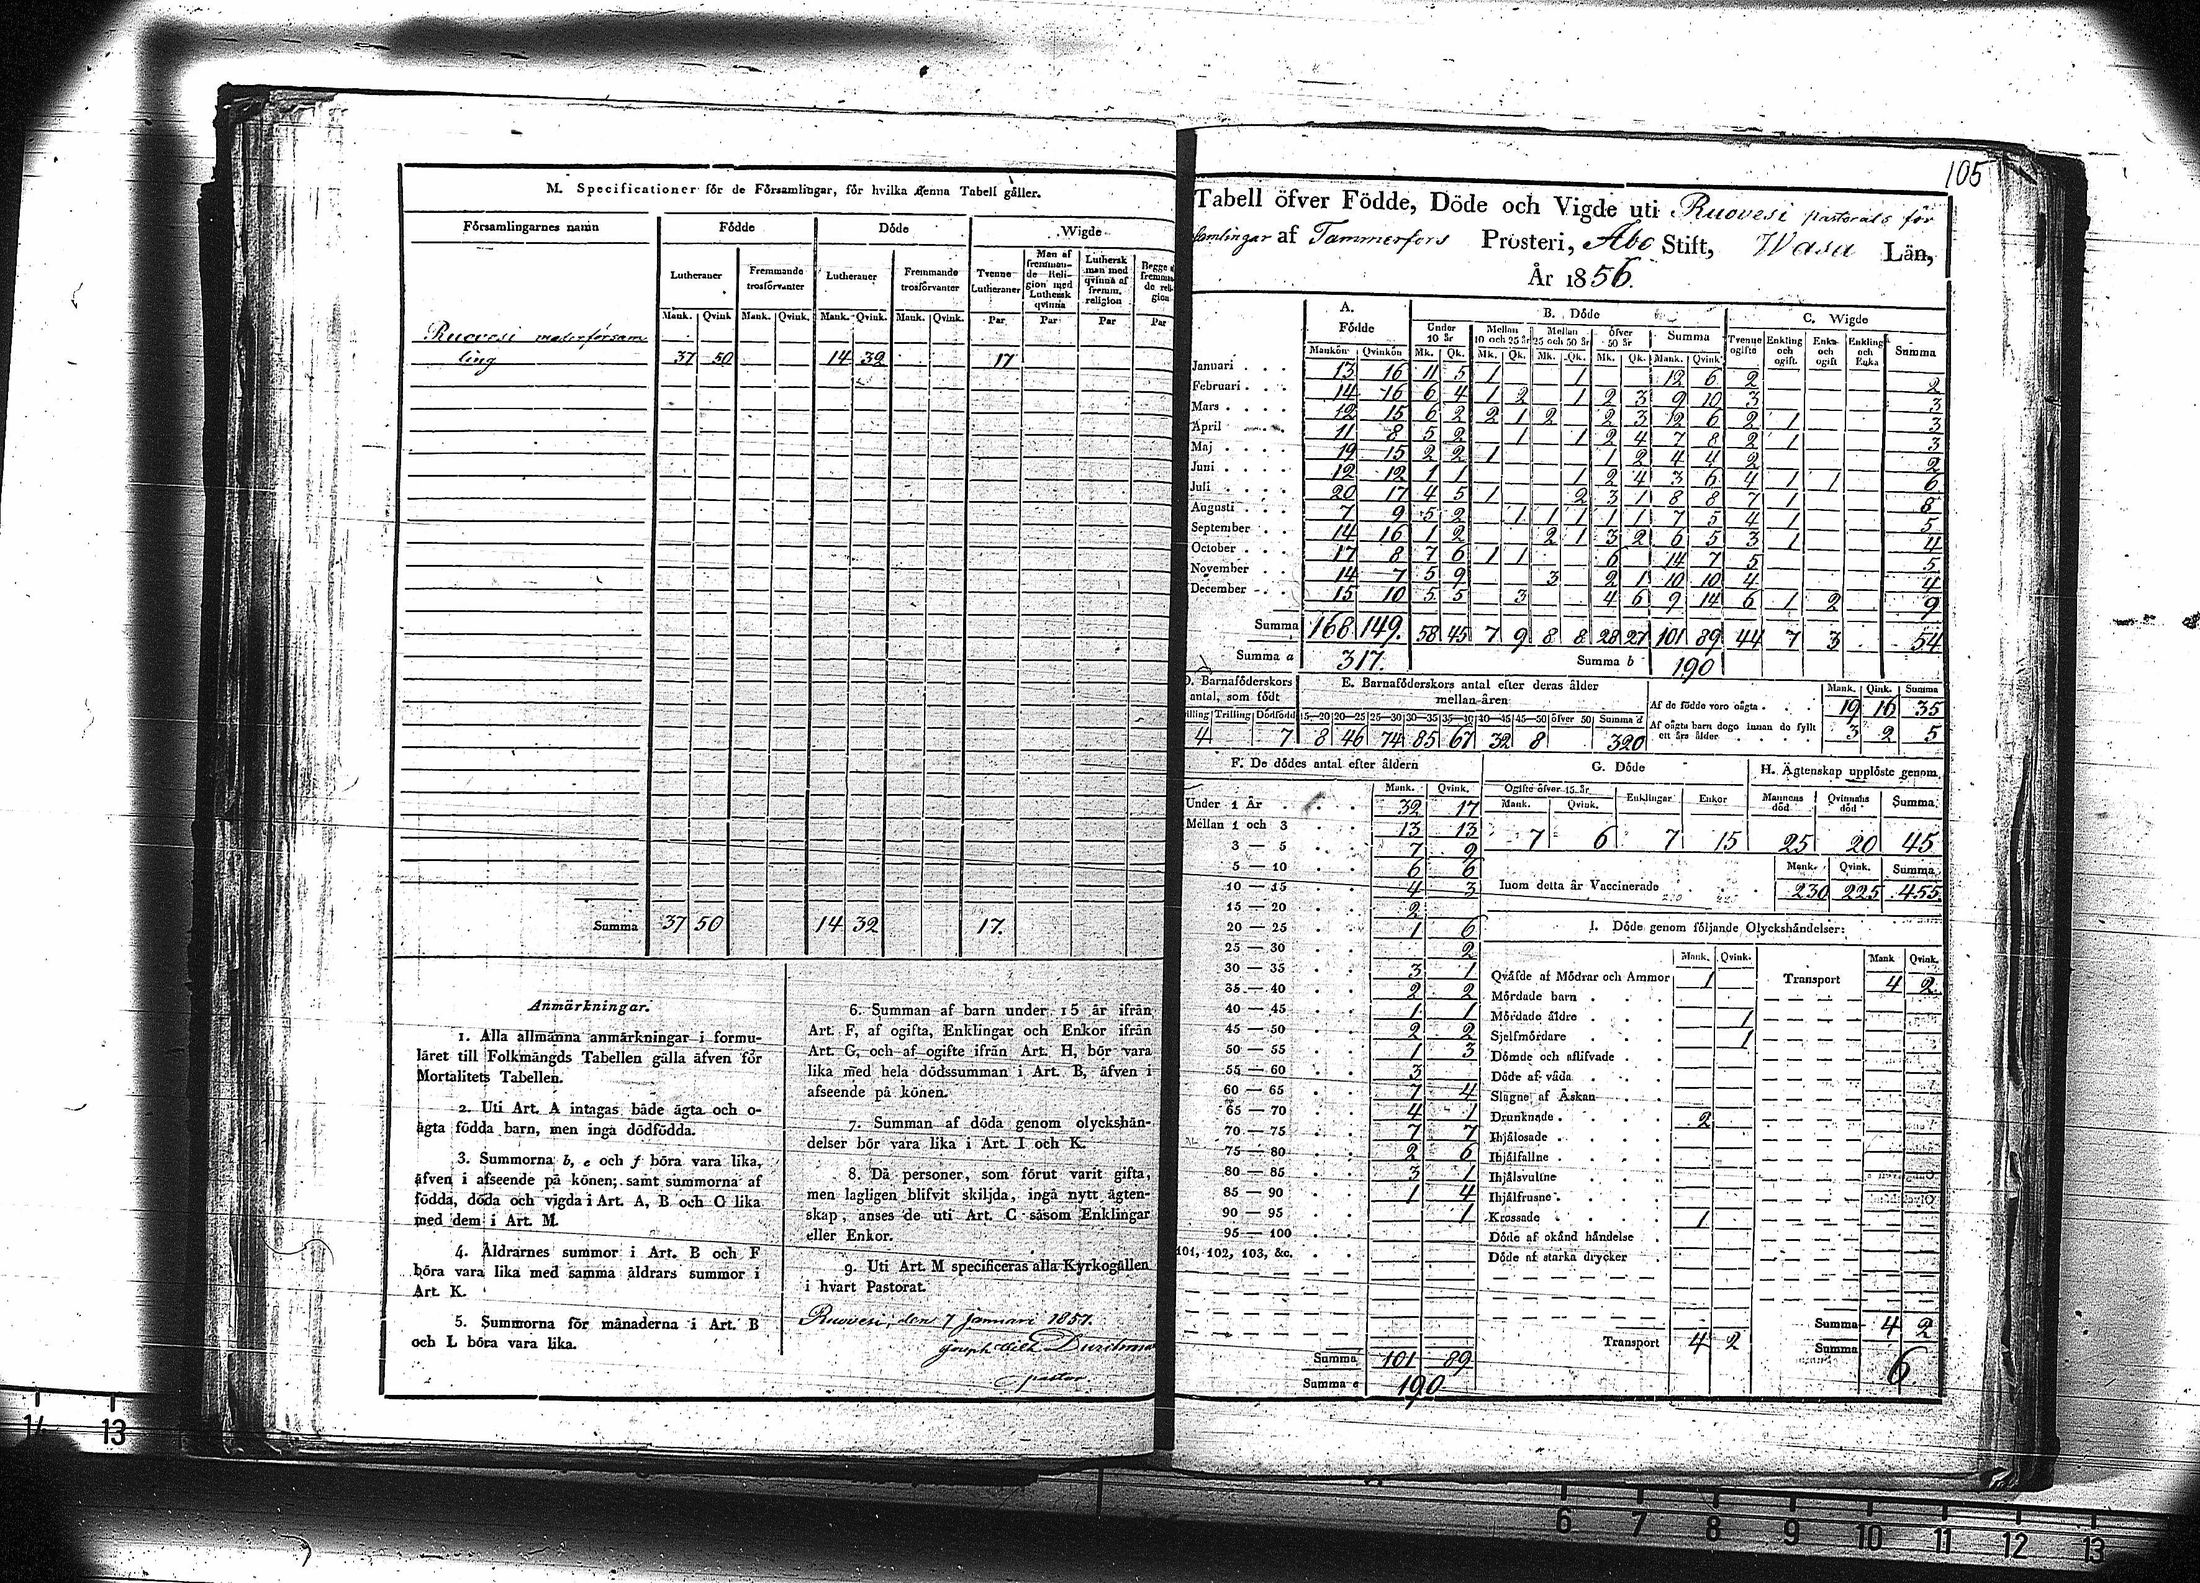 M. Specificationer för de Församlingar, för hvilka denna Tabell gäller.
Församlingarnes namn Födde Döde Wigde
Lutheraner Fremmande trosförvanter Lutheraner Fremmande trosförvanter Tvenne Lutheraner Man af fremmande Religion med Luthersk qvinna Luthersk man med qvinna af fremm. religion Begge fremmande religion
Mank. Qvink Mank. Qvink. Mank. Qvink. Mank. Qvink. Par Par Par Par
Ruovesi moderförsam
ling 37 50 14 32 17
Summa 37 50 14 32 17.
Anmärkningar.
1. Alla allmänna anmärkningar i formu-
läret till Folkmängds Tabellen gälla äfven för
Mortalitets Tabellen.
2. Uti Art. A intagas både ägta och o-
ägta födda barn, men inga dödfödda.
3. Summorna b, e och f böra vara lika,
äfven i afseende på könen; samt summorna af
födda, döda och vigda i Art. A, B och C lika
med dem i Art. M.
4. Åldrarnes summor i Art. B och F
böra vara lika med samma åldrars summor i
Art. K.
5. Summorna för månaderna i Art. B
och L böra vara lika.
6. Summan af barn under 15 år ifrån
Art. F, af ogifta, Enklingar och Enkor ifrån
Art. G, och af ogifte ifrån Art. H, bör vara
lika med hela dödssumman i Art. B, äfven i
afseende på könen.
7. Summan af döda genom olyckshän-
delser bör vara lika i Art. I och K.
8. Då personer, som förut varit gifta,
men lagligen blifvit skiljda, ingå nytt ägten-
skap, anses de uti Art. C såsom Enklingar
eller Enkor.
9. Uti Art. M specificeras alla Kyrkogällen
i hvart Pastorat.
Ruovesi, den 7 Januari 1857.
pastor
105
Tabell öfver Födde, Döde och Vigde uti Ruovesi pastorats för
samlingar af Tammerfors Prosteri, Åbo Stift, Wasa Län,
År 1856.
A. Födde B. Döde C. Wigde
Under 10 år Mellan 10 och 25 år Mellan 25 och 50 år öfver 50 år Summa Tvenne ogifte Enkling och ogift. Enka och ogift Enkling och Enka Summa
Mankön Qvinkön Mk. Qk. Mk. Qk. Mk. Qk. Mk. Qk. Mank. Qvink
Januari 13 16 11 5 1 1 12 6 2 2
Februari 14 16 6 4 1 2 1 2 3 9 10 3 3
Mars 12 15 6 2 2 1 2 2 3 12 6 2 1 3
April 11 8 5 2 1 1 2 4 7 8 2 1 3
Maj 19 15 2 2 1 1 2 4 4 2 2
Juni 12 12 1 1 1 2 4 3 6 4 1 1 6
Juli 20 17 4 5 1 2 3 1 8 8 7 1 8
Augusti 7 9 5 2 1 1 1 1 1 7 5 4 1 5
September 14 16 1 2 2 1 3 2 6 5 3 1 4
October 17 8 7 6 1 1 6 14 7 5 5
November 14 7 5 9 3 2 1 10 10 4 4
December 15 10 5 5 3 4 6 9 14 6 1 2 9
Summa 168 149. 58 45 7 9 8 8 28 27 101 89 44 7 3 54
Summa a 317. Summa b 190
D. Barnaföderskors antal, som födt
Trilling Dödfödd
4 7
E. Barnaföderskors antal efter deras ålder mellan åren
15—20 20—25 25—30 30—35 35—40 40—45 45—50 öfver 50 Summa d
8 46 74 85 67 32 8 320
Mank. Qink. Summa
Af de födde voro oägta 19 16 35
Af oägta barn dogo innan de fyllt ett års ålder 3 2 5
F. De dödes antal efter åldern
Mank. Qvink.
Under 1 År 32 17
Mellan 1 och 3 13 13
3 — 5 7 9
5 — 10 6 6
10 — 15 4 3
15 — 20 2
20 — 25 1 6
25 — 30 2
30 — 35 3 1
35 — 40 2 2
40 — 45 1 1
45 — 50 2 2
50 — 55 1 3
55 — 60 3
60 — 65 7 4
65 — 70 4 1
70 — 75 7 7
75 — 80 2 6
80 — 85 3 1
85 — 90 1 4
90 — 95 1
95 — 100
101, 102, 103, &c.
Summa 101 89
Summa e 190
G. Döde
Ogifte öfver 15 år Enklingar Enkor
Mank. Qvink.
7 6 7 15
H. Ägtenskap upplöste genom
Mannens död Qvinnans död Summa
25 20 45
Mank. Qvink. Summa
Inom detta år Vaccinerade 230 225 455.
I. Döde genom följande Olyckshändelser:
Mank. Qvink. Mank Qvink.
Qväfde af Mödrar och Ammor 1 Transport 4 2
Mördade barn
Mördade äldre 1
Sjelfmördare 1
Dömde och aflifvade
Döde af våda
Slagne af Åskan
Drunknade 2
Ihjälosade
Ihjälfallne
Ihjälsvultne
Ihjälfrusne
Krossade 1
Döde af okänd händelse
Döde af starka drycker
Summa 4 2
Transport 4 2 Summa 6
14 13 6 7 8 9 10 11 12 13